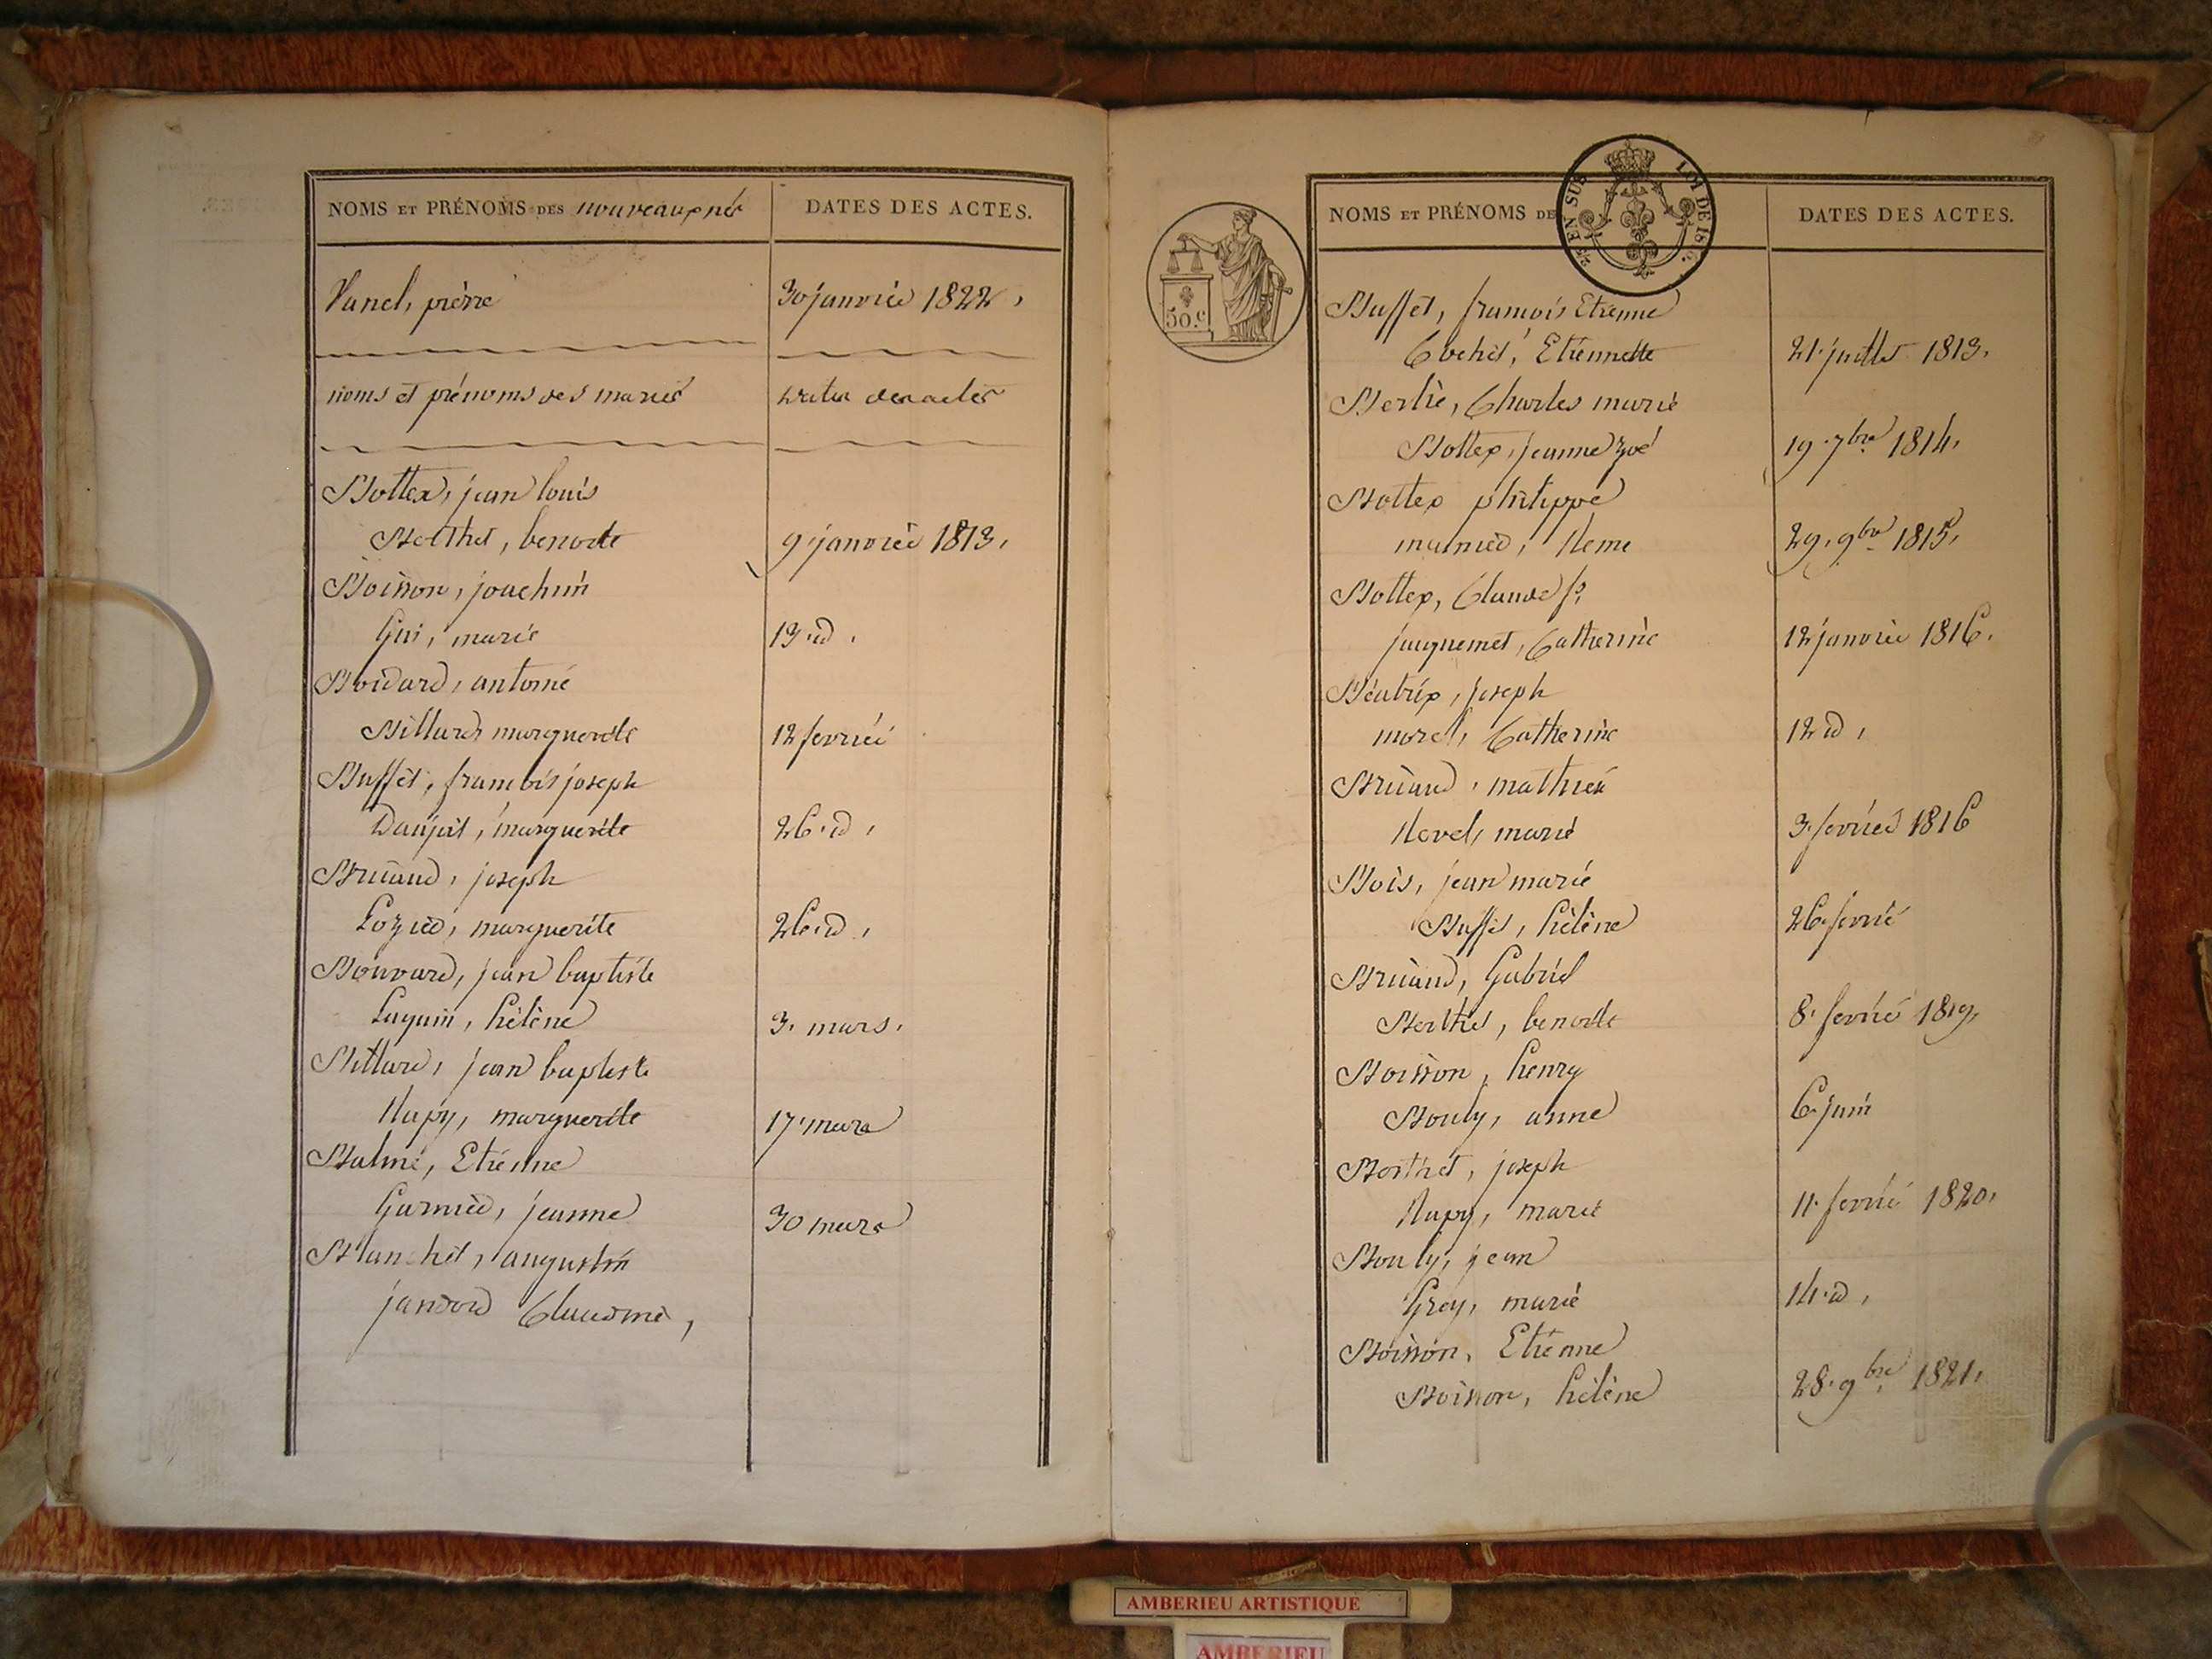 NOMS ET PRÉNOMS DES nouveaux nés DATES DES ACTES.
Vanel, pierre 30 janvier 1822,
noms et prénoms des mariés dates des actes
Bottex, jean louis
Berthet, benoite 9 janvier 1813,
Boisson, joachim
Gui, marie 13 id,
Boidard, antoine
Billard marguerite 12 fevrier
Buffet, francois joseph
marguerite 26 id,
Bruand, joseph
Lozier, marguerite 26 id,
Bouvard, jean baptiste
Laguin, hélène 3. mars.
Billard, jean baptiste
Napy, marguerite 17 mars
Balme, Etienne
Garnier, jeanne 30 mars
Blanchet, augustin
Claudine,
50.c
EN SUS LOI DE 18
NOMS ET PRÉNOMS DE DATES DES ACTES.
Buffet, francois Etienne
Cochet, Etiennette 21 juillet 1813.
Berlie, Charles marie
Bottex, jeanne zoé 19 7bre 1814,
Bottex philippe
29. 9bre 1815,
Bottex, Claude
juiguemet, Catherine 12 janvier 1816.
Béatrix, joseph
morel, Catherine 12 id,
Bruand, mathieu
marie 3 fevrier 1816
Bois, jean marie
Buffet, hélène 26 fevrie
Bruand, Gabriel
Berthet, benoite 8. fevrié 1819,
Boisson, henry
Bouly, anne 6 juin
Berthet, joseph
Napy, marie 11 fevrié 1820,
Bouly, jean
Grey, marie 14 id,
Boisson, Etienne
Boisson, hélène 28. 9bre 1821,
AMBERIEU ARTISTIQUE
AMBERIEU